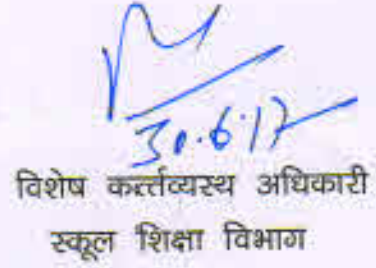 30.6.17
विशेष कर्त्तव्यस्थ अधिकारी
स्कूल शिक्षा विभाग